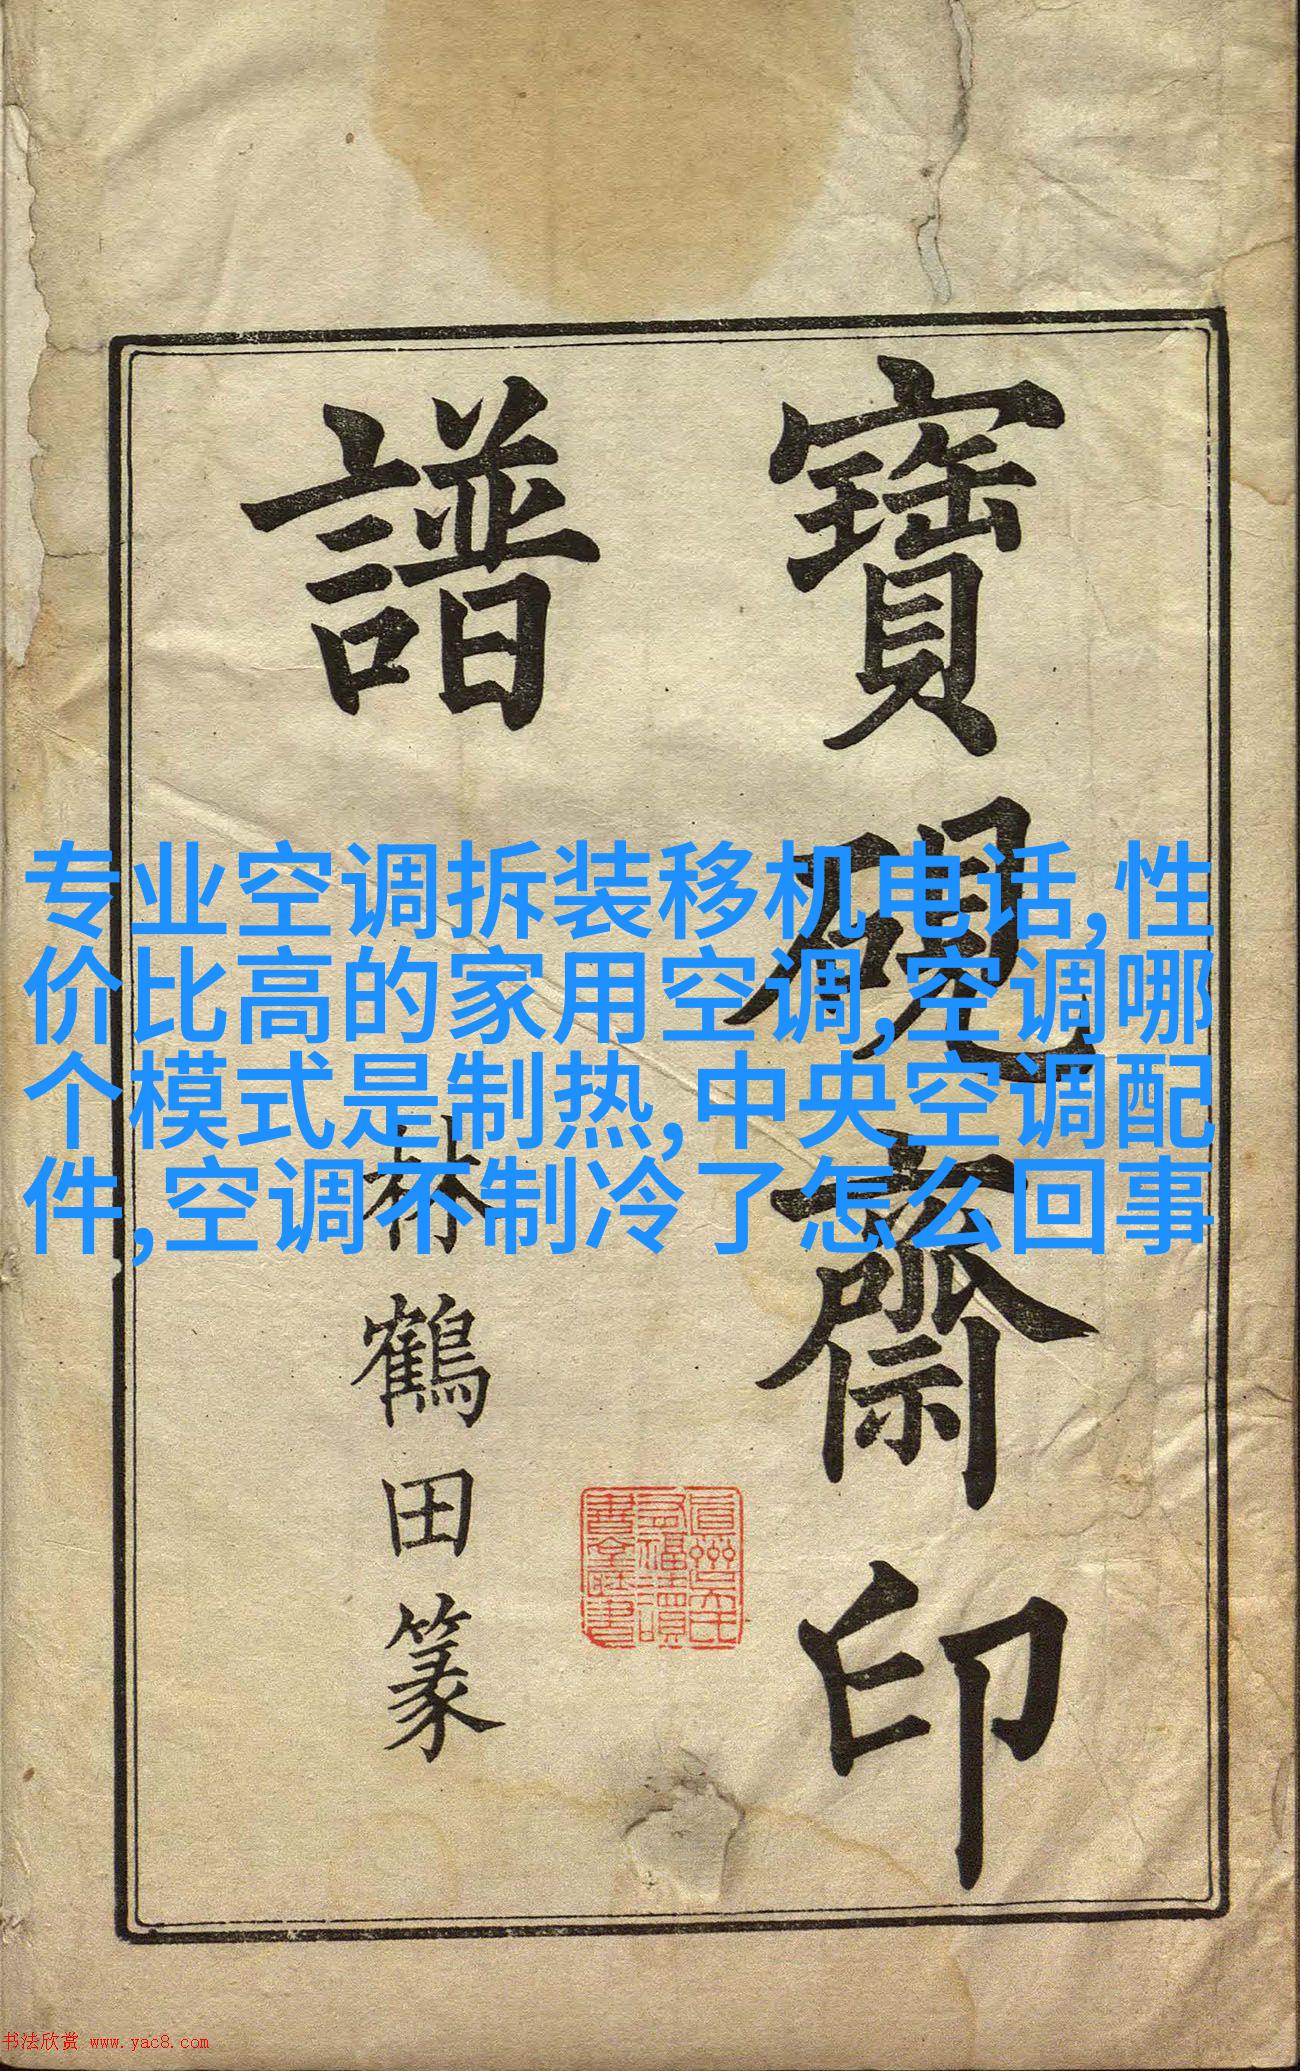 寶硯齋印
譜
林鶴田篆
专业空调拆装移机电话,性
价比高的家用空调,空调哪
个模式是制热,中央空调配
件,空调不制冷了怎么回事
书法欣赏 www.yac8.com